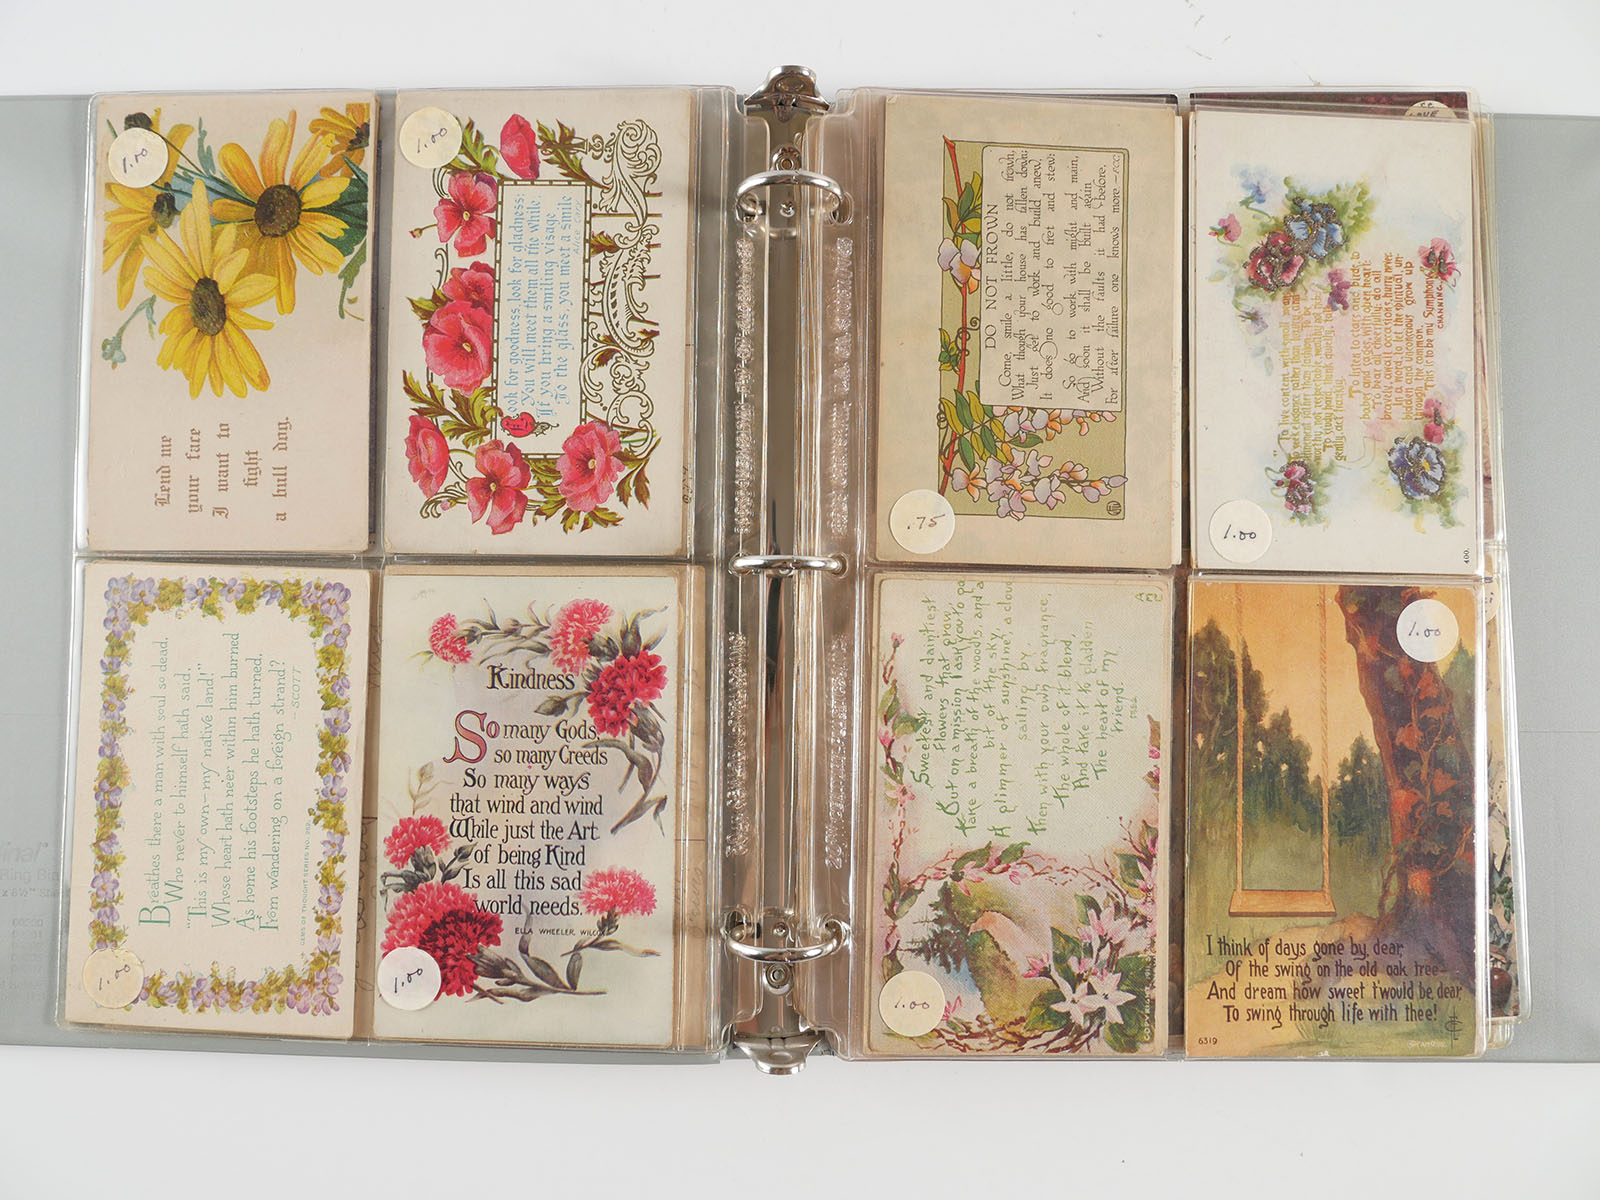 1.00
Lend me
your face
I want to
fight
a bull dog.
1.00
Look for goodness, look for gladness;
You will meet them all the while.
If you bring a smiling visage
To the glass, you meet a smile
Alice Cary
Breathes there a man with soul so dead,
Who never to himself hath said,
"This is my own-my native land!"
Whose heart hath ne'er within him burned
As home his footsteps he hath turned,
From wandering on a foreign strand?
-SCOTT
GEMS OF THOUGHT SERIES NO. 352
1.00
Kindness
So many Gods,
so many Creeds
So many ways
that wind and wind
While just the Art
of being Kind
Is all this sad
world needs.
ELLA WHEELER WILCOX
1.00
DO NOT FROWN
Come, smile a little, do not frown,
What though your house has fallen down;
Just get to work and build anew,
It does no good to fret and stew;
So go to work with might and main,
And soon it shall be built again
Without the faults it had before,
For after failure one knows more
.75
"To live content with small means;
to seek elegance rather than luxury, and
refinement rather than fashion. To be
worthy, not respectable; wealthy, not rich.
To study hard, think quietly, talk
gently, act frankly.
To listen to stars and birds, to
babes and sages, with open heart:
To bear all cheerfully; do all
bravely, await occasions, hurry never.
In a word, to let the spiritual, un-
bidden and unconscious grow up
through the common.
This is to be my Symphony."
CHANNING.
1.00
400.
LOVE
Sweetest and daintiest
flowers that grow,
But on a mission I ask you to go
Take a breath of the woods, and a
bit of the sky,
A glimmer of sunshine, a cloud
sailing by.
Then with your own fragrance,
the whole of it blend,
And take it to gladden
The heart of my
friend.
1.00
1.00
I think of days gone by, dear,
Of the swing on the old oak tree-
And dream how sweet t'would be, dear,
To swing through life with thee!
6319